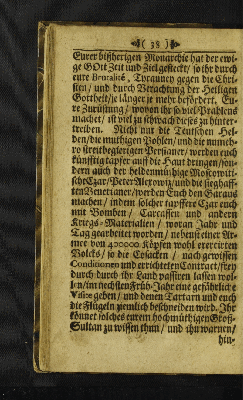 ( 38 )
Eurer bißherigen Monarchie hat der ewi-
ge GOtt Zeit und Ziel gesteckt / so ihr durch
eure Brutalité, Tyranney gegen die Chri-
sten / und durch Verachtung der Heiligen
Gottheit / je länger je mehr befördert. Eu-
re Zurüstung / wovon ihr so viel Prahlens
machet / ist viel zu schwach dieses zu hinter-
treiben. Nicht nur die Teutschen Hel-
den / die muthigen Pohlen / und die nunmeh-
ro streitbegierigen Persianer / werden euch
künfftig tapfer auf die Haut dringen / son-
dern auch der heldenmühige Moscowiti-
sche Czar / Peter Alexowiz / und die sieghaff-
ten Venetianer / werden Euch den Garaus
machen / indem solcher tapffere Czar euch
mit Bomben / Carcassen und andern
Kriegs-Materialien / woran Jahr und
Tag gearbeitet worden / nebenst einer Ar-
mee von 400000. Köpfen wohl exercirten
Volcks / so die Cosacken / nach gewissen
Conditionen und errichteten Contract / frey
durch durch ihr Land passiren lassen wol-
len / im nechsten Früh-Jahr eine gefährliche
Visite geben / und denen Tartarn und euch
die Flügeln ziemlich beschneiden wird. Ihr
könnet solches eurem hochmüthigen Groß-
Sultan zu wissen thun / und ihn warnen /
hin-